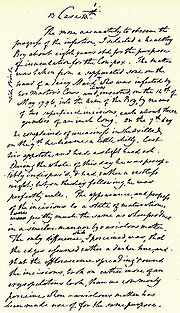 Case
The more accurately to observe the
progress of the infection, I selected a healthy
Boy about eight years old for the purpose
of inoculation for the Cow pox. The matter
was taken from a suppurated sore on the
hand of a dairy Maid who was infected by
her master's Cows and inserted on the 14th of
May 1796, into the arm of the Boy by means
of two superficial incisions, each about three
quarters of an inch long. On the 7th day
he complained of uneasiness in the axilla &
on the 9th he became a little chilly, lost
his appetite and had a slight head ach
During the whole of this day he was percep-
tibly indisposed & had rather a restless
night; but on the day following he was
perfectly well. The appearance and progress
of the incisions to a state of maturation
were pretty much the same as when produced
in a similar manner by variolous matter.
The only difference I perceived was that
the edges assumed rather a darker hue, and
that the efflorescence spreading round
the incisions, took on rather more of an
erysipelatous look, than we commonly
perceive when variolous matter has
been made use of for the same purpose.